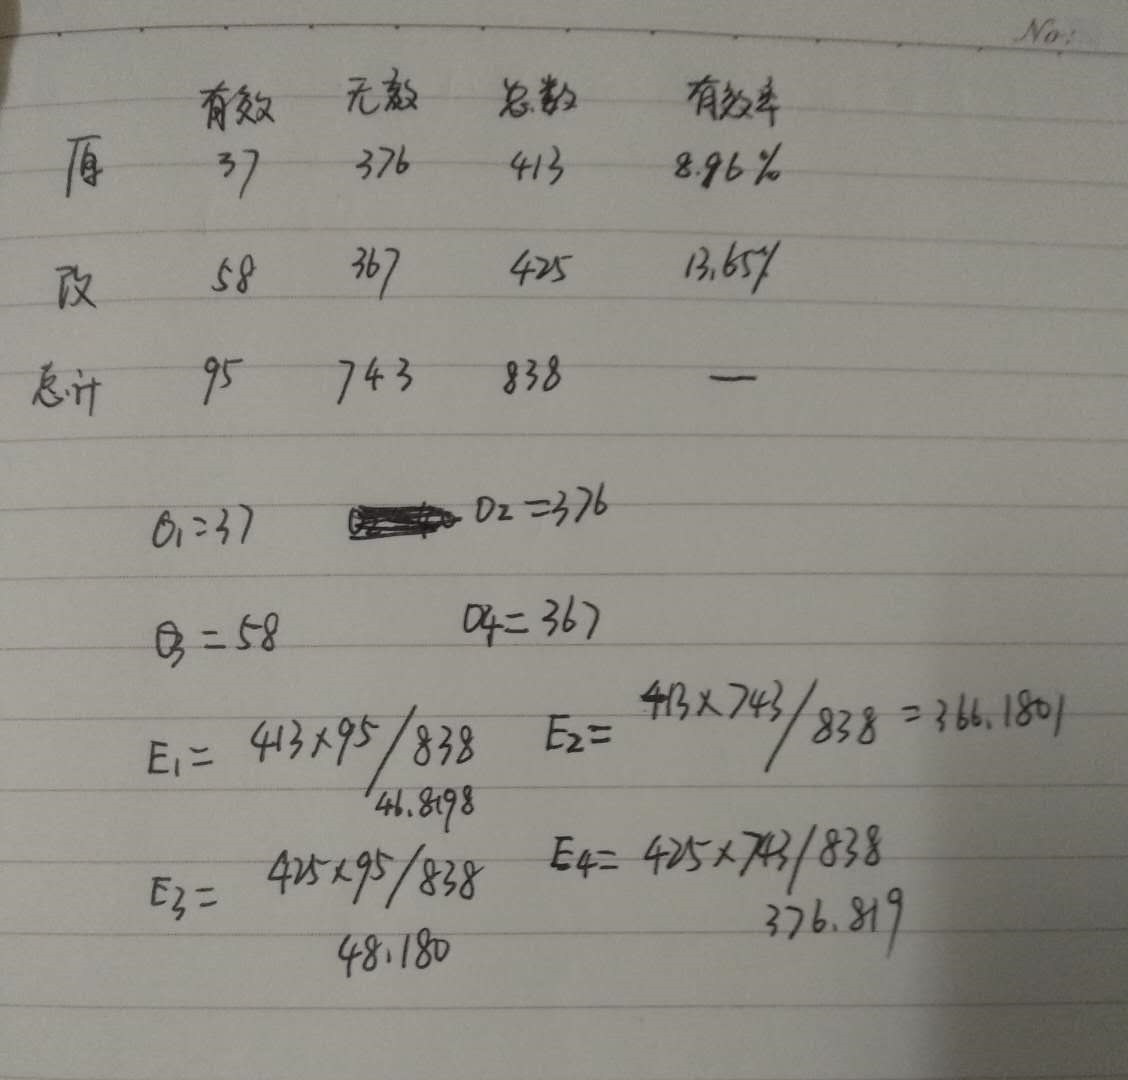 No:
有效 无效 总数 有效率
原 37 376 413 8.96%
改 58 367 425 13.65%
总计 95 743 838 —
O1=37 O2=376
O3=58 O4=367
E1= 413×95/838 E2= 413×743/838=366.1801
46.8198
E3= 425×95/838 E4= 425×743/838
48.180 376.819